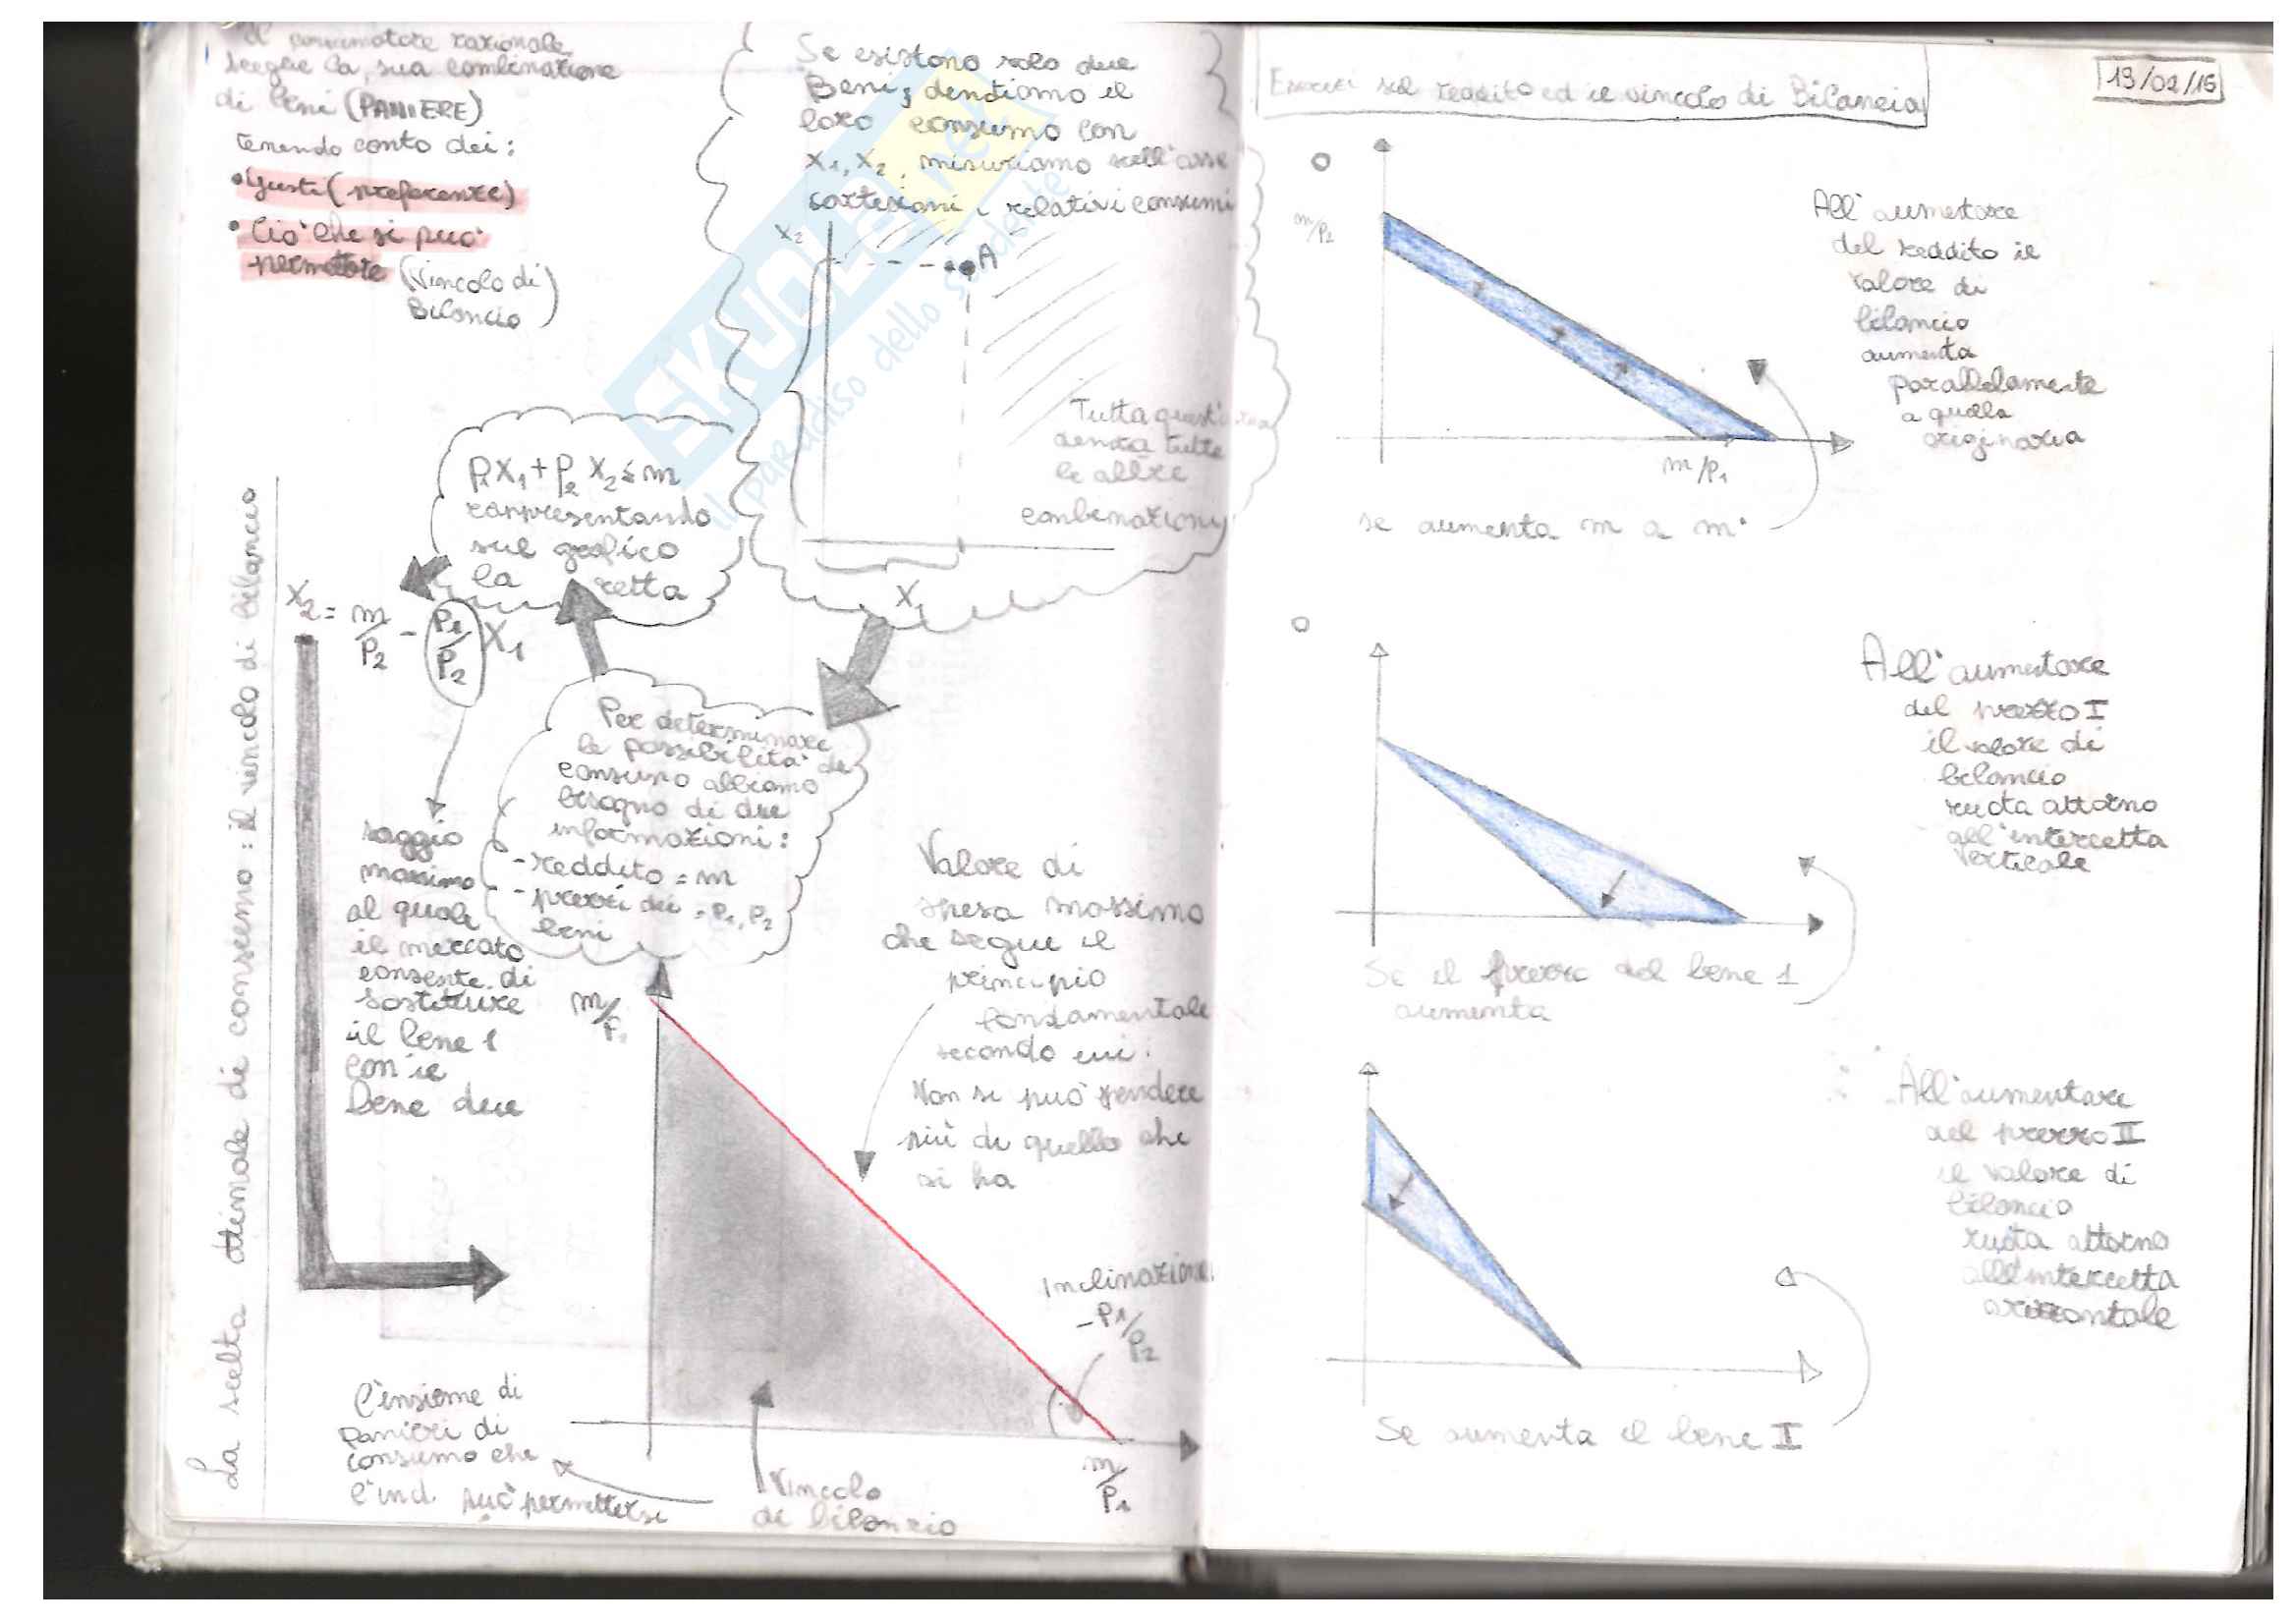 Il consumatore razionale
sceglie la sua combinazione
di beni (PANIERE)
tenendo conto dei:
• Gusti (preferenze)
• Ciò che si può
permettere (Vincolo di
Bilancio)
Se esistono solo due
Beni, dendiamo il
loro consumo con
X1, X2, misuriamo sull'asse
cartesiani i relativi consumi
X2
A
Tutta quest'
denota tutte
le altre
combinazioni
X1
P1X1+P2X2≤m
rappresentando
sul grafico
la retta
X2= m/P2 - P1/P2 X1
saggio
massimo
al quale
il mercato
consente di
sostituire
il bene 1
con il
Bene due
Per determinare
le possibilità di
consumo abbiamo
bisogno di due
informazioni:
- reddito = m
- prezzi dei = P1, P2
beni
Valore di
spesa massimo
che segue il
principio
fondamentale
secondo cui:
Non si può spendere
più di quello che
si ha
m/P1
Inclinazione
-P1/P2
m/P1
L'insieme di
panieri di
consumo che
l'ind. può permettersi
Vincolo
di bilancio
La scelta ottimale di consumo: il vincolo di Bilancio
SKUOLA.net
il paradiso dello studente
Esercizi sul reddito ed il vincolo di Bilancia
13/02/15
m/P2
m/P1
se aumenta m a m'
All'aumentare
del reddito il
valore di
bilancio
aumenta
parallelamente
a quella
originaria
Se il prezzo del bene 1
aumenta
All'aumentare
del prezzo I
il valore di
bilancio
ruota attorno
all'intercetta
verticale
Se aumenta il bene II
All'aumentare
del prezzo II
il valore di
bilancio
ruota attorno
all'intercetta
orizzontale